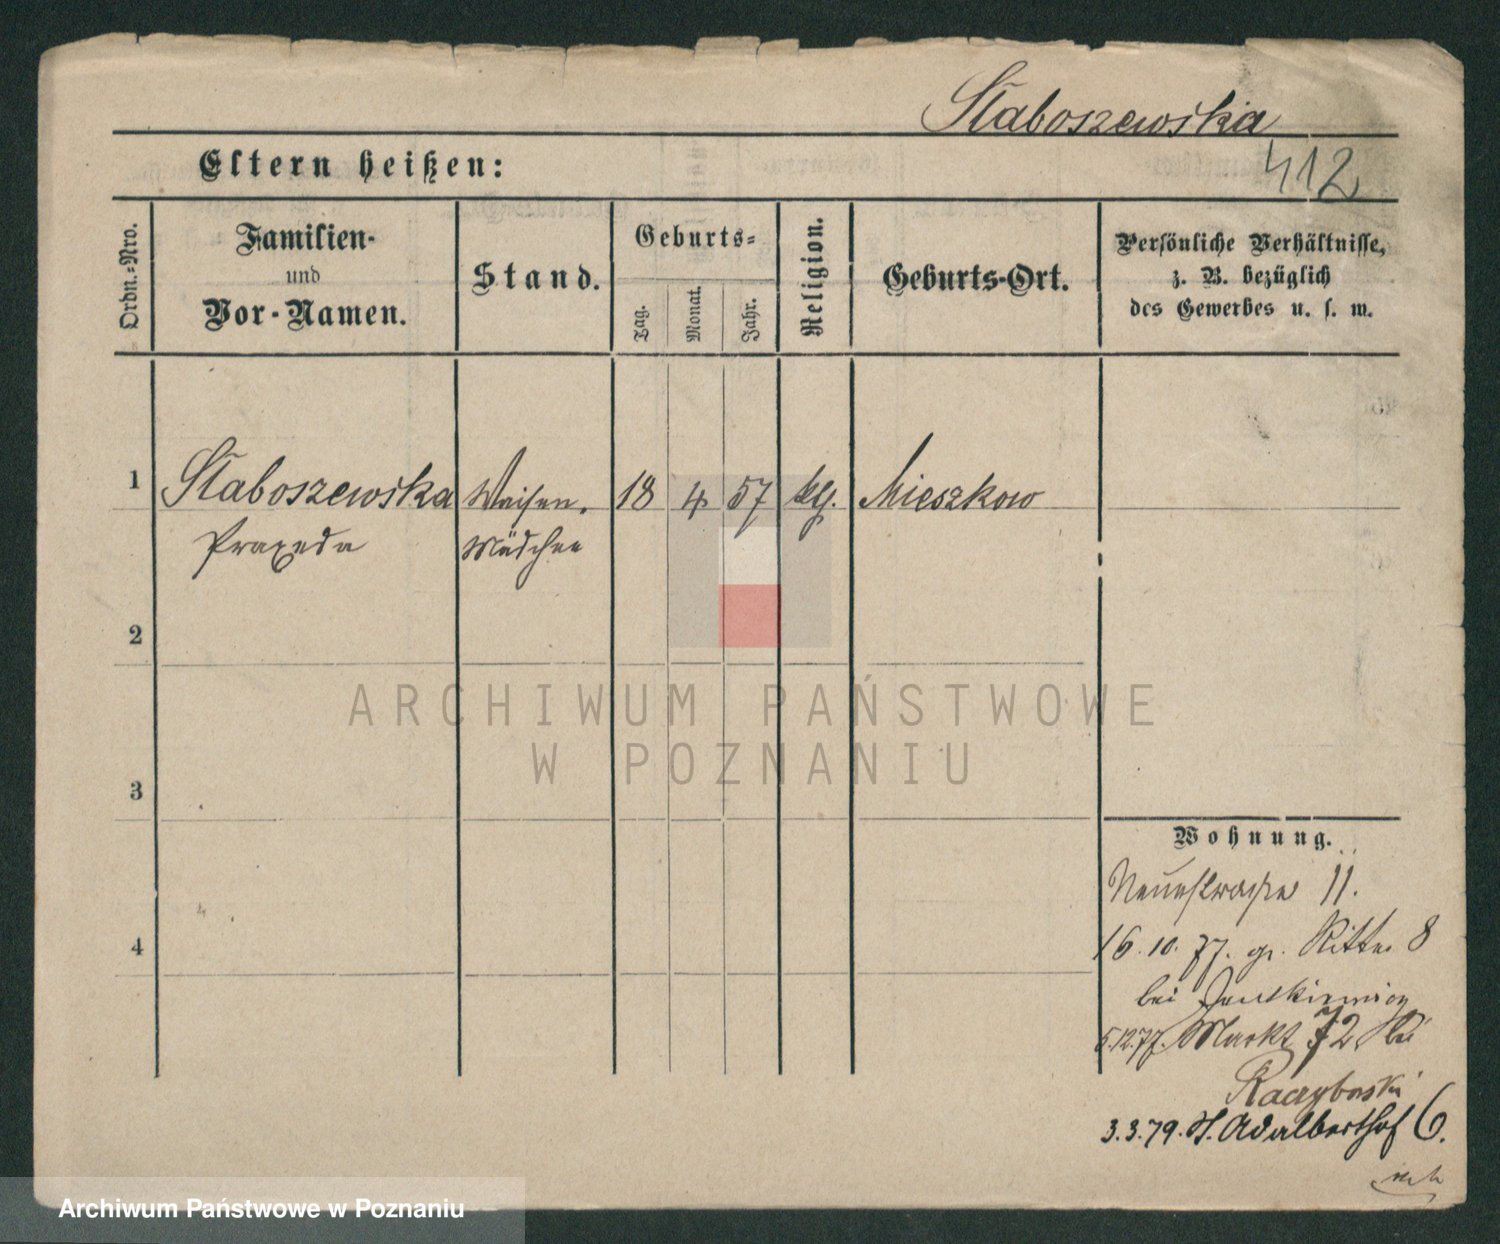 Staboszewska
412
Eltern heißen:
Ordn.-Nro.
Familien-
und
Vor-Namen.
Stand.
Geburts-
Tag.
Monat.
Jahr.
Religion.
Geburts-Ort.
Persönliche Verhältnisse,
z. B. bezüglich
des Gewerbes u. s. w.
1 Staboszewska Waisen. 18 4 57 kg. Mieszkow
Praxeda Mädchen
2
ARCHIWUM PAŃSTWOWE
W POZNANIU
3
Wohnung.
Neuestrasse 11.
4
16. 10. 77. gr. Ritter 8
bei
5.12.77. Markt 72 bei
Raczyborski
3.3.79. St. Adalberthof 6.
Archiwum Państwowe w Poznaniu